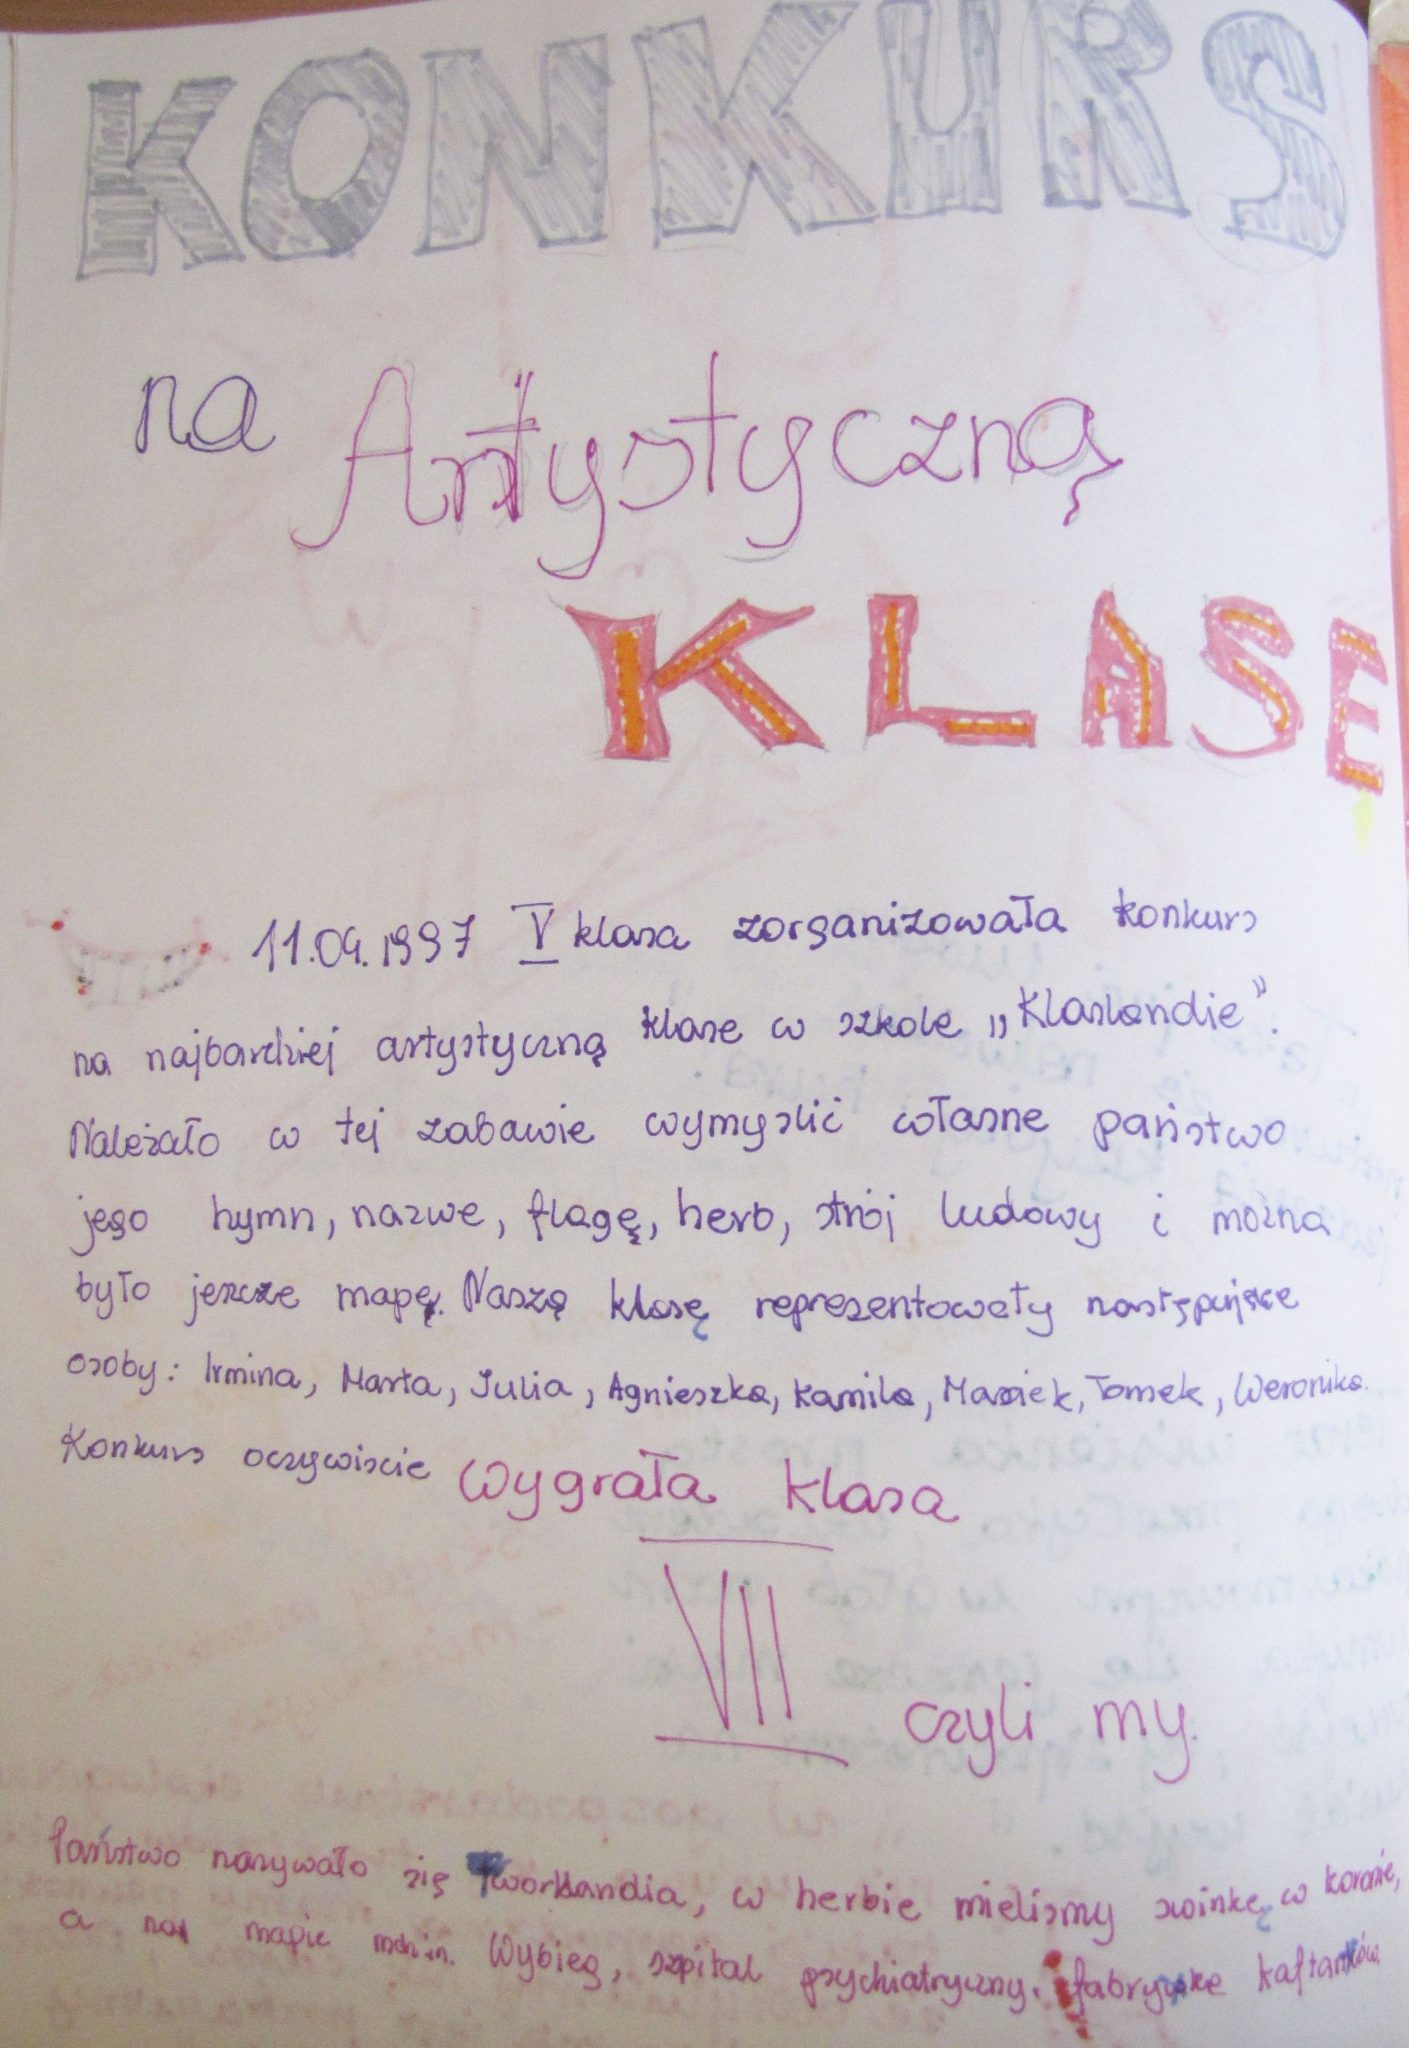 KONKURS
na Artystyczną
KLASĘ
11.09.1997 V klasa zorganizowała konkurs
na najbardziej artystyczną klase w szkole „Klaslandie”.
Należało w tej zabawie wymyslić własne państwo
jego hymn, nazwe, flagę, herb, strój ludowy i można
było jeszcze mapę. Naszą klasę reprezentowały następujące
osoby: Irmina, Marta, Julia, Agnieszka, Kamila, Maciek, Tomek, Weronika.
Konkurs oczywiscie wygrała klasa
VII czyli my.
Państwo nazywało się tworklandia, w herbie mielismy swinkę w koronie,
a na mapie m.in. Wybieg, szpital psychiatryczny, fabrykę kaftanków.